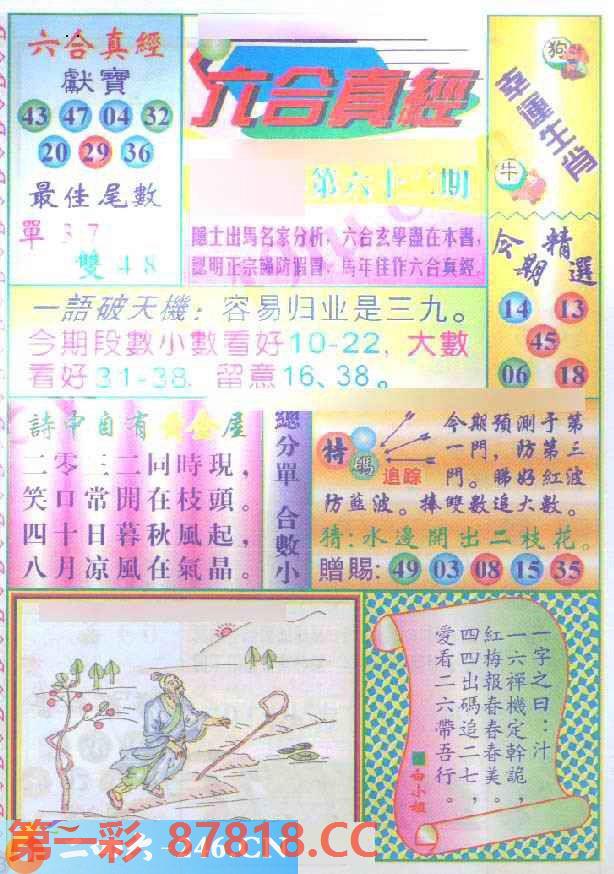 六合真經
獻寶
43 47 04 32
20 29 36
最佳尾數
單 3 7
雙 4 8
六合真經
第六十二期
隱士出馬名家分析，六合玄學盡在本書，
認明正宗謹防假冒，馬年佳作六合真經。
狗
幸運生肖
牛
今期精選
14 13
45
06 18
一語破天機：容易归业是三九。
今期段數小數看好10-22，大數
看好31-38，留意16、38。
詩中自有黃金屋
二零三二同時現，
笑口常開在枝頭。
四十日暮秋風起，
八月凉風在氣晶。
總分單 合數小
特
碼
追踪
今期預測于第
一門，防第三
門。睇好紅波
防藍波。捧雙數追大數。
猜:水邊開出二枝花。
贈賜: 49 03 08 15 35
一字之曰：汁
一六禪機定幹詭，
紅梅報春春春美。
四四出碼追二七，
愛看二六帶吾行。
■白小姐
第一彩 87818.CC
246.CN